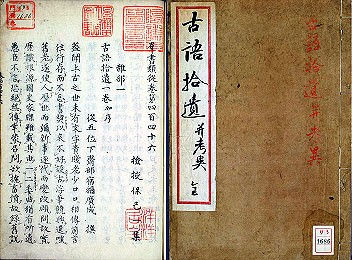 古語拾遺并考異
古語拾遺 并考異 全
1686
羣書類從卷第四百四十六
檢挍保己一集
雜部一
古語拾遺一卷加序
從五位下齋部宿禰廣成 撰
蓋聞上古之世未有文字貴賤老少口口相傳前言
往行存而不忘書契以來不好談古浮華競興還嗤
舊老遂使人歷世而彌新事逐代而變改顧問故實
靡識根源國史家牒雖載其由一二委曲猶有所遺
愚臣不言恐絕無傳幸蒙召問欲攄蓄憤故錄舊說